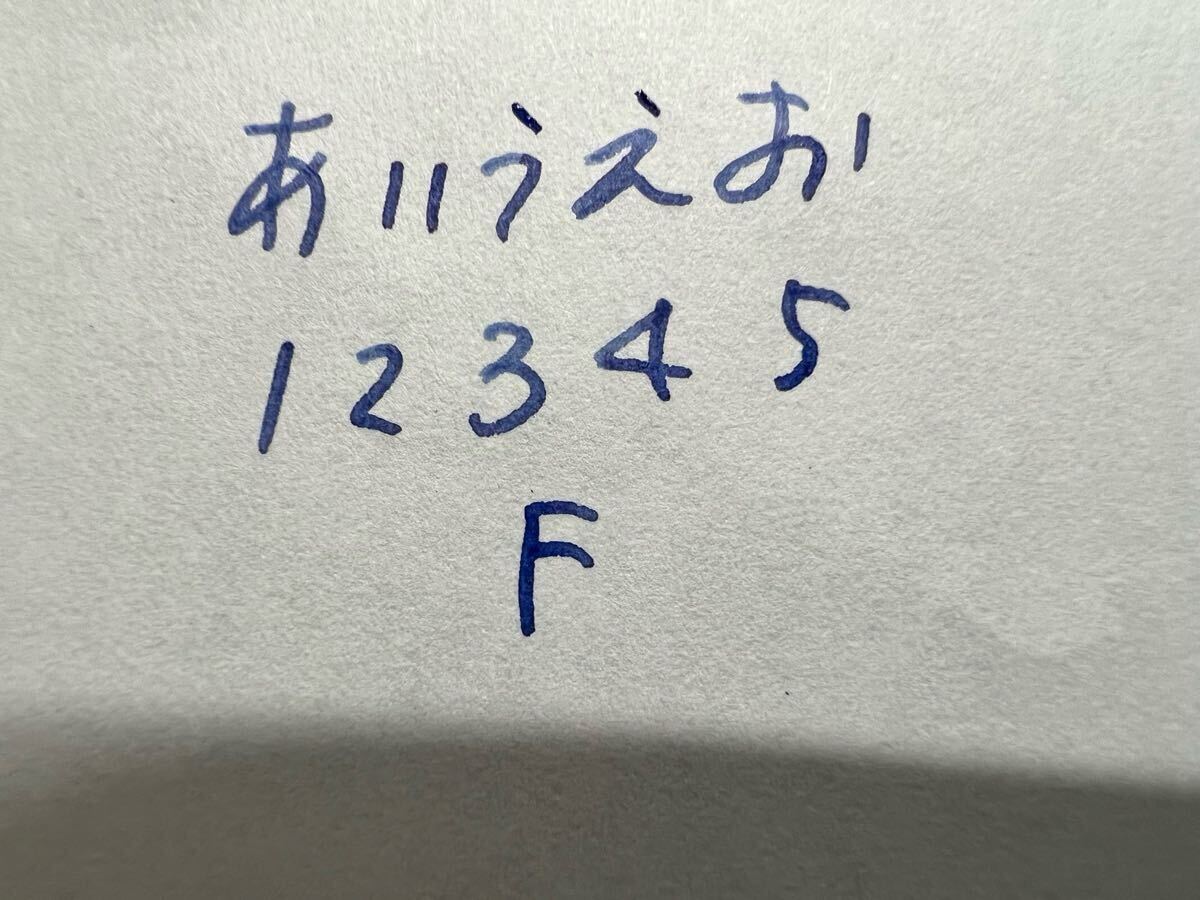 あいうえお
1 2 3 4 5
F